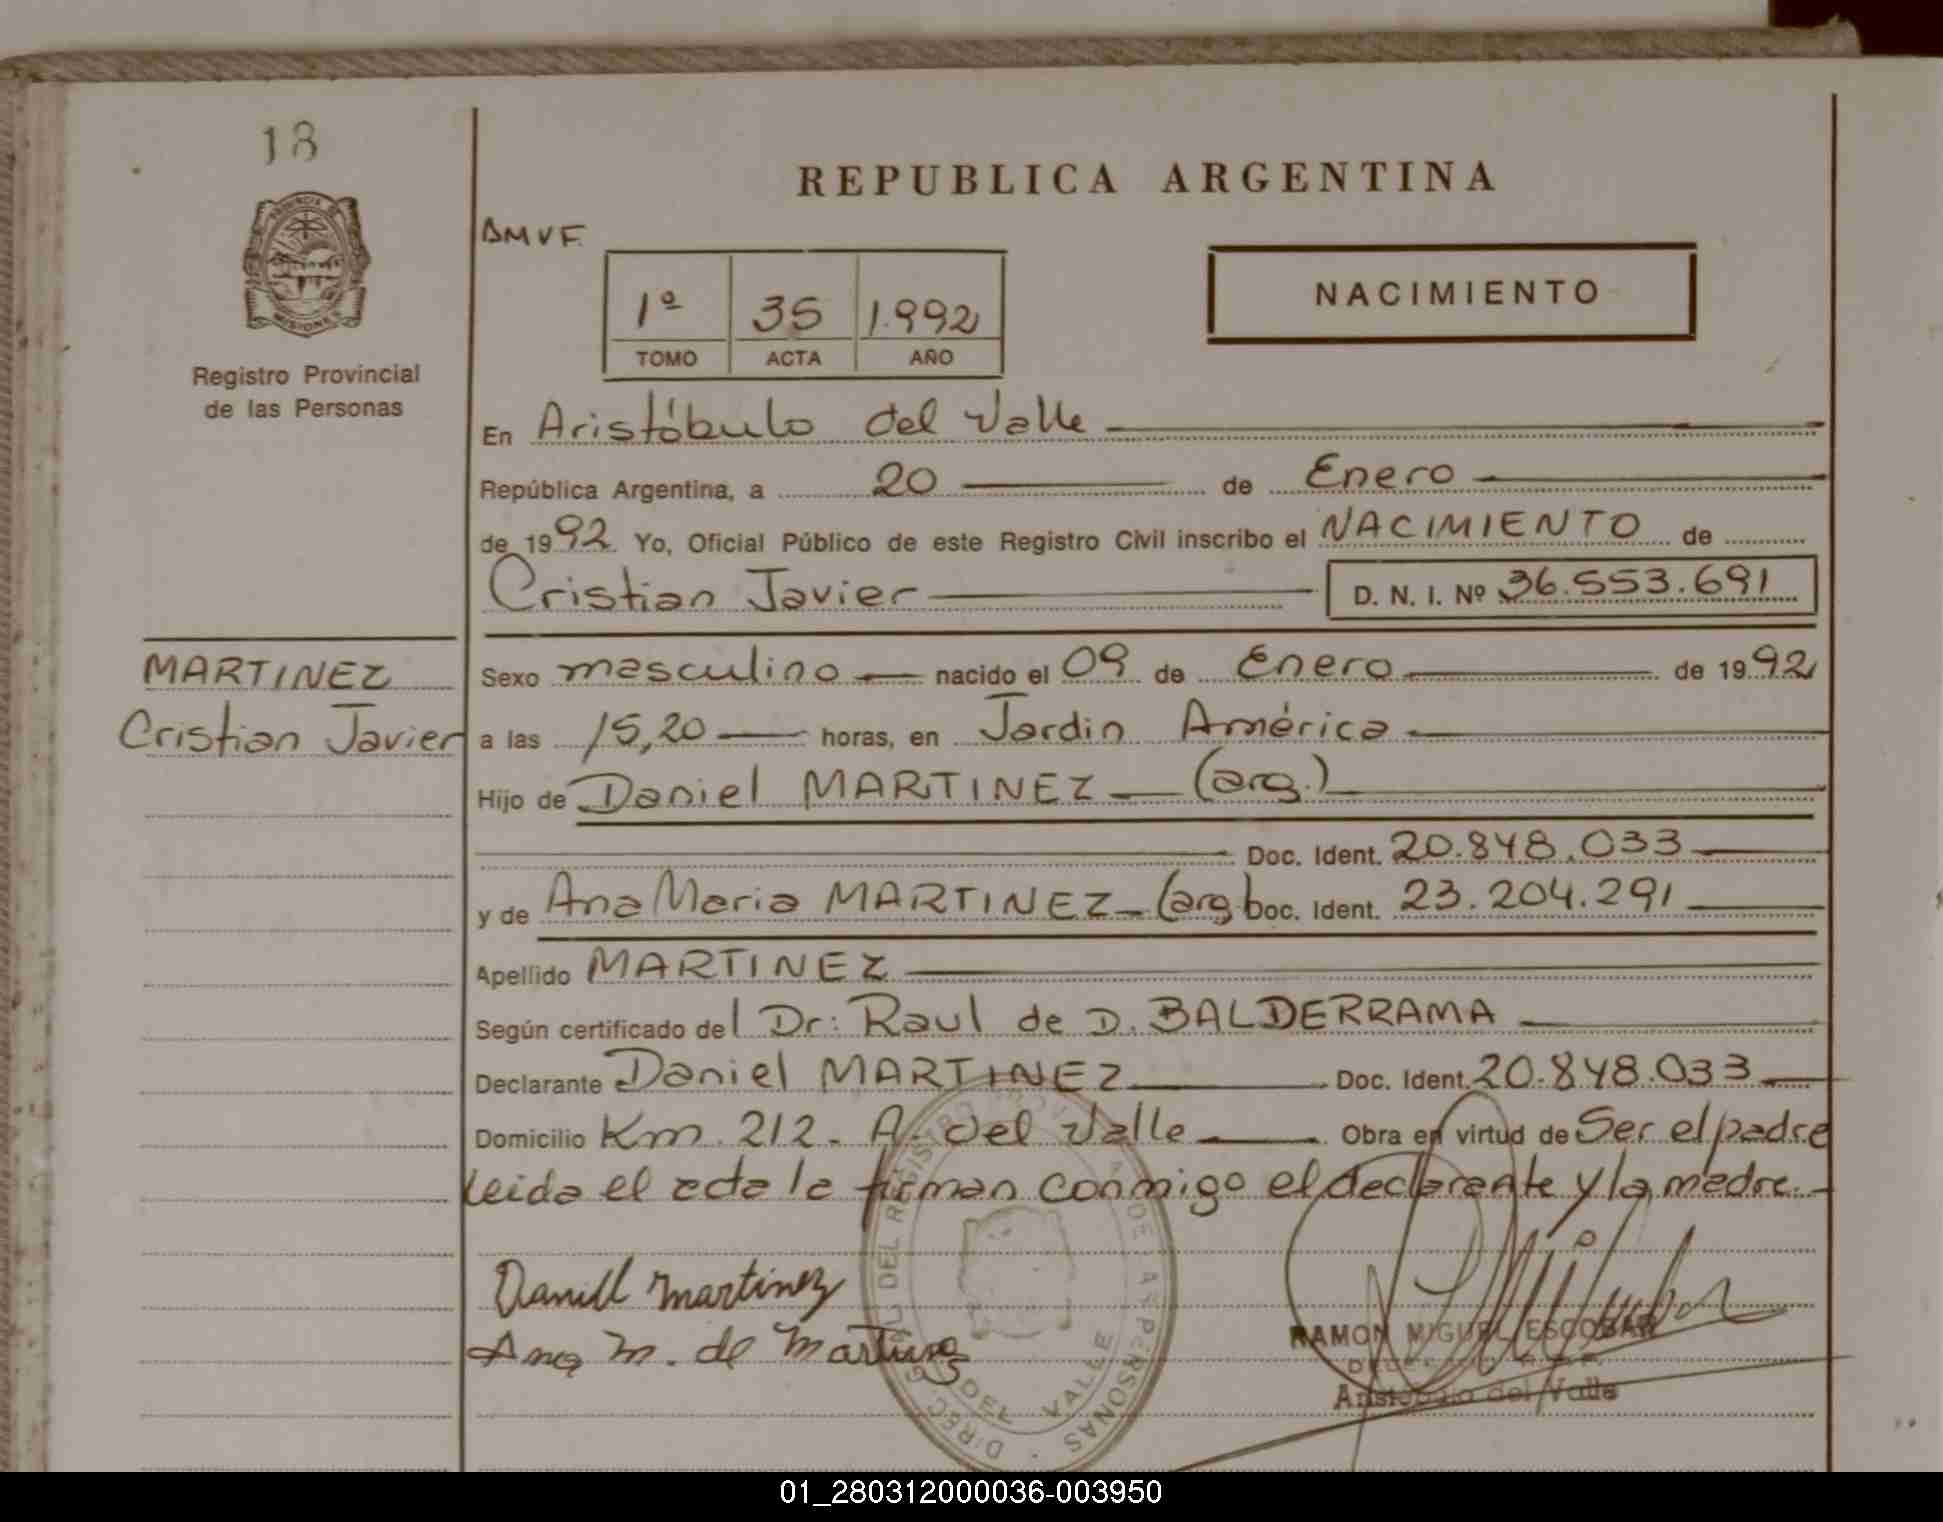 18
REPUBLICA ARGENTINA
PROVINCIA DE MISIONES
Registro Provincial
de las Personas
NACIMIENTO
1º 35 1.992
TOMO ACTA AÑO
En Aristóbulo del Valle
República Argentina, a 20 de Enero
de 1992 Yo, Oficial Público de este Registro Civil inscribo el NACIMIENTO de
Cristian Javier D. N. I. Nº 36.553.691
MARTINEZ
Cristian Javier
Sexo masculino nacido el 09 de Enero de 1992
a las 15,20 horas, en Jardin América
Hijo de Daniel MARTINEZ (arg.)
Doc. Ident. 20.848.033
y de Ana Maria MARTINEZ (arg) Doc. Ident. 23.204.291
Apellido MARTINEZ
Según certificado del Dr: Raul de D. BALDERRAMA
Declarante Daniel MARTINEZ Doc. Ident. 20.848.033
Domicilio Km. 212. A. del Valle Obra en virtud de Ser el padre
Leida el acta la firman conmigo el declarante y la madre.
Daniel Martinez
Ana M. de Martinez
DIREC. GRAL DEL REGISTRO PROVINCIAL DE LAS PERSONAS
DEL VALLE
RAMON MIGUEL ESCOBAR
Aristóbulo del Valle
01_280312000036-003950